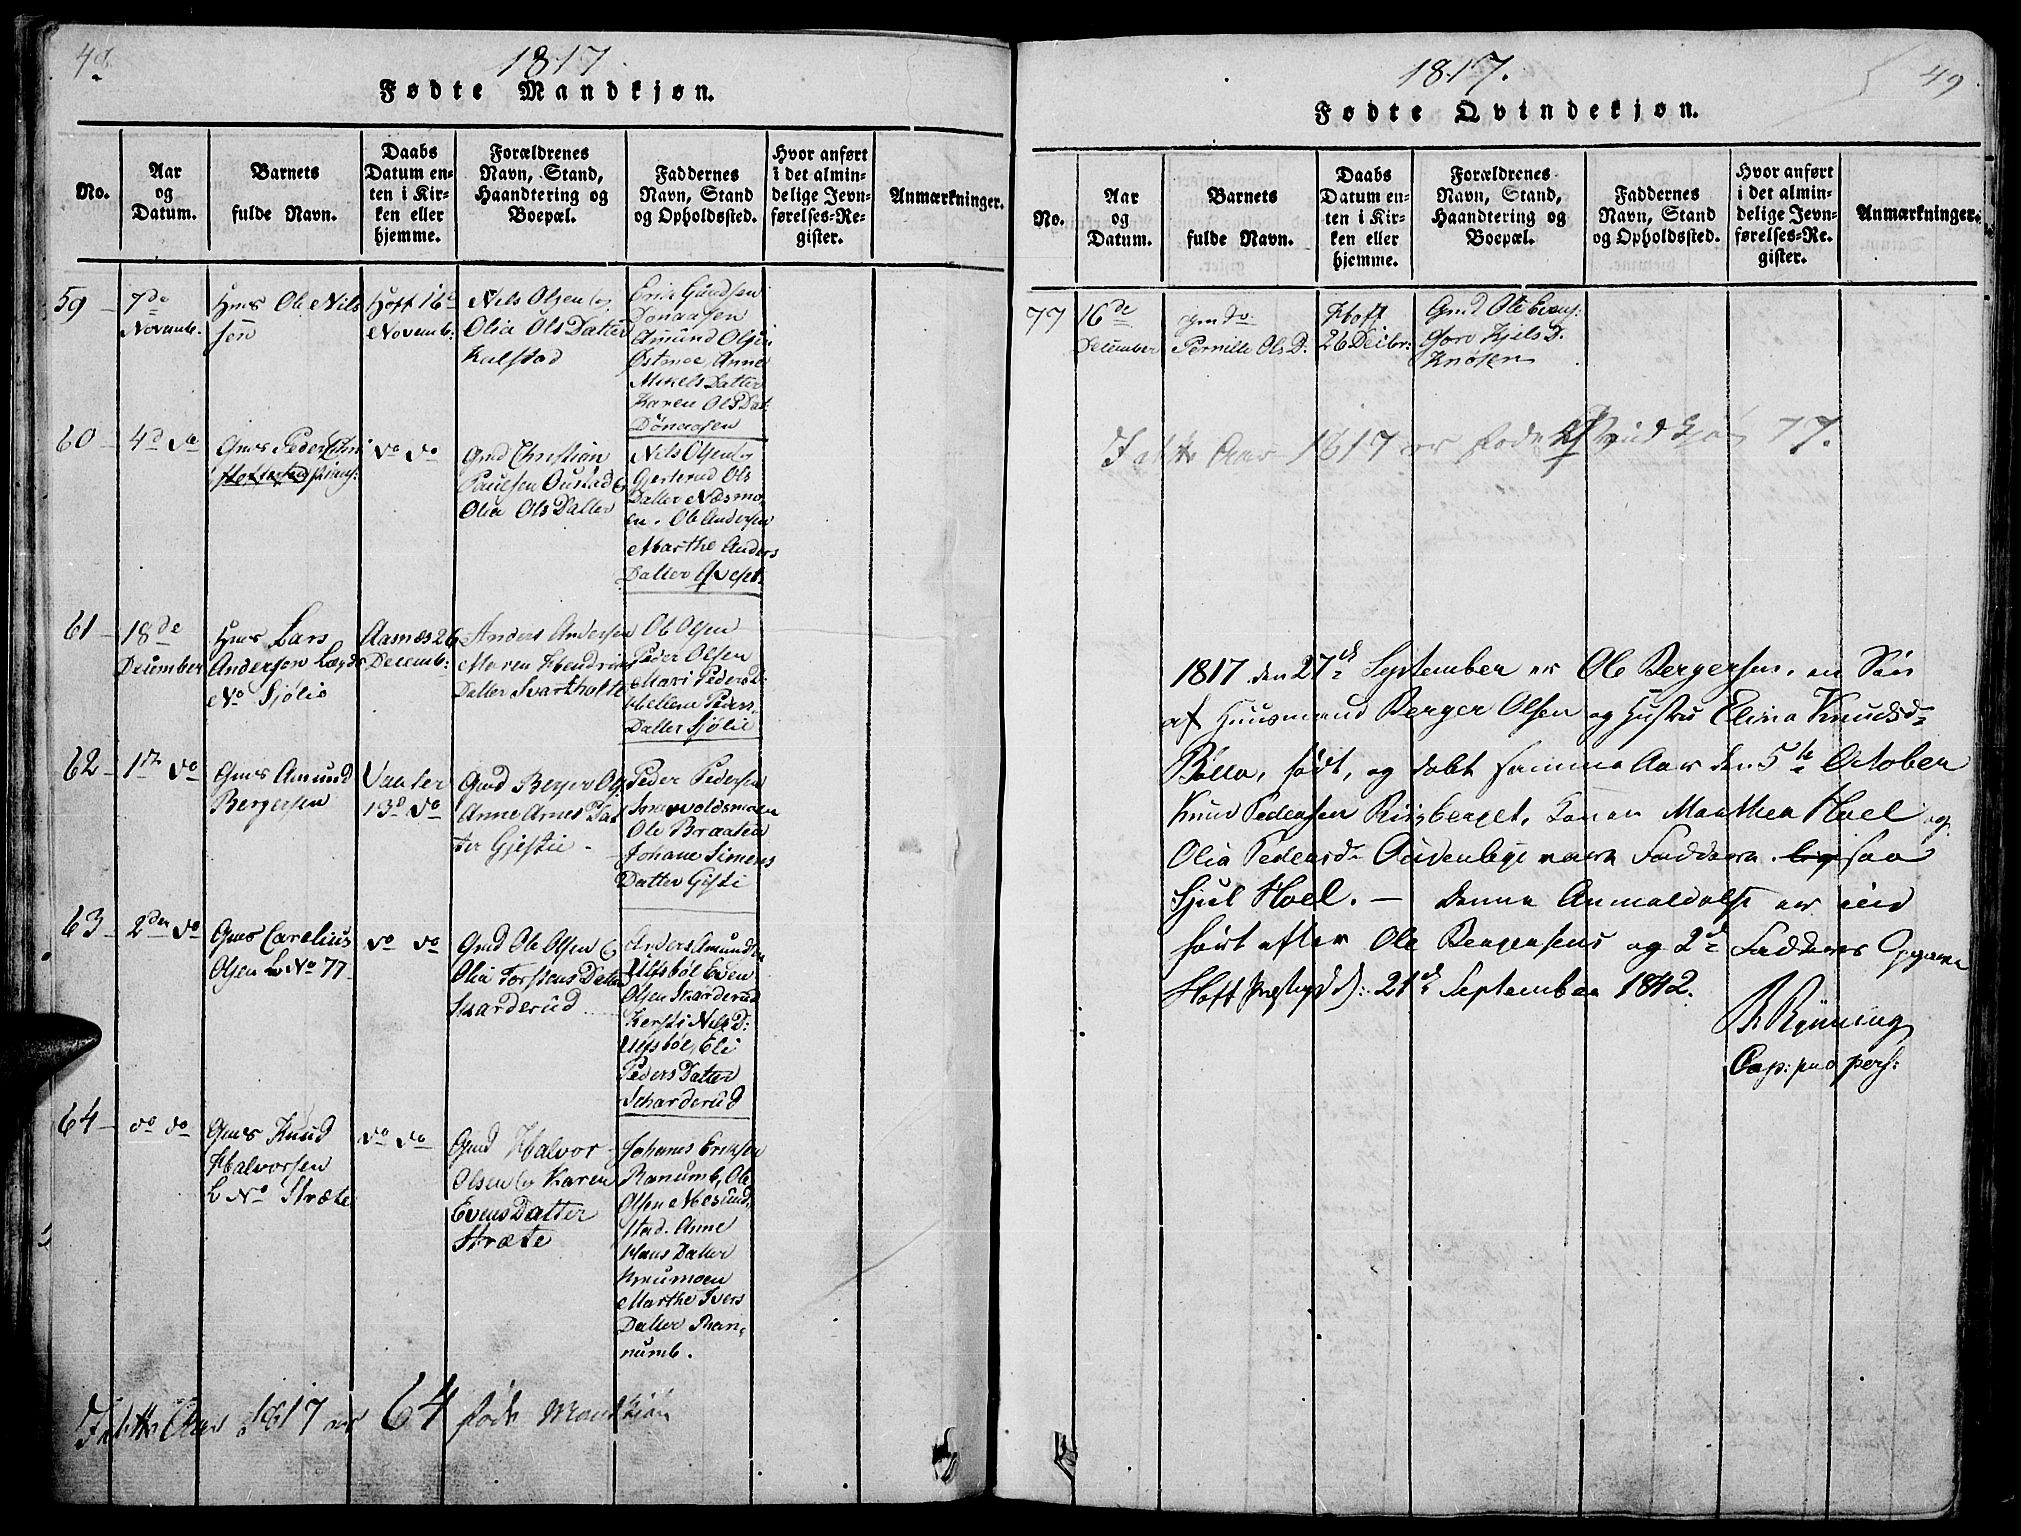 48.
1817.
Fødte Mandkjøn.
No.
Aar
og
Datum.
Barnets
fulde Navn.
Daabs
Datum en-
ten i Kir-
ken eller
hjemme.
Forældrenes
Navn, Stand,
Haandtering og
Boepæl.
Faddernes
Navn, Stand
og Opholdssted.
Hvor anført
i det almin-
delige Jevn-
førelses-Re-
gister.
Anmærkninger.
59
7de
Novemb.
Hms Ole Nils
sen
Hoff 16d
Novemb:
Nils Olsen og
Olia Ols Datter
Kalstad
Eric Gundsen
Dönaasen
Amund Olsen
Østmoe Anne
Mikels Datter
Karen Ols Dat
Dönaasen
60
4d do
Gms Peder Chri
stians:
do do
Gmd Christian
Paulsen Oustad &
Olia Ols Datter
Nils Olsen
Gjesterud Ols
Datter Næsmo
en. Ole Andersen
Marthe Anders
Datter Qvest.
61
18de
December
Hms Lars
Andersen Lægds
No Sjölie
Aasnæs 26
Decemb:
Anders Andersen
Maren Hendrics
Datter Svartholte
Ole Olsen
Peder Olsen
Mari Peders D:
Hellene Peders
Datter Sjölie
62
1ste do
Gms Amund
Bergersen
Vaaler
13d do
Gmd Berger Og
Anne Arnes Dat
ter Gjestie
Peder Pedersen
Ole Braaten
Johane Simens
Datter Gisti
63
2den do
Gms Carelius
Olsen L No 77
do do
Gmd Ole Olsen &
Olia Torstens Datter
Skarderud
Anders Amundsen
Ulfsböl Even
Olsen Skarderud
Kersti Nils D:
Ulfsböl, Eli
Peders Datter
Scharderud
64
do do
Gms Knud
Halvorsen
L No Stræte
do do
Gmd Halvor
Olsen og Karen
Evens Datter
Stræte
Johanes Eriksen
Ranumb, Ole
Olsen Mosund
stad. Anne
Hans Datter
Knumoen
Marthe Ivers
Datter Ran-
numb.
I dette Aar 1817 er 64 föde Mandkjön
49
1817.
Fødte Qvindekjøn.
No.
Aar
og
Datum.
Barnets
fulde Navn.
Daabs
Datum en-
ten i Kir-
ken eller
hjemme.
Forældrenes
Navn, Stand,
Haandtering og
Boepæl.
Faddernes
Navn, Stand
og Opholdssted.
Hvor anført
i det almin-
delige Jevn-
førelses-Re-
gister.
Anmærkninger.
77
16de
December
Gmds
Pernille Ols D:
Hoff
26 Decbr:
Gmd Ole Evens:
Goro Kjels D.
Knösen
I dette Aar 1817 er föde Qvindkjön 77.
1817 den 27de September er Ole Bergersen, en Sön
af Huusmand Berger Olsen og Hustru Elina Knudsdr
Bölla, född, og döbt samme Aar den 5te October
Knud Pedersen Risberget, Konen Marthea Hoel og
Olia Pedersdr Audenbye vare Faddere. saa
Sjul Hoel. — Denne Anmeldelse er ind
fört efter Ole Bergersens og 2de Fadderes Opgave
Hoff Præstegd d: 21de September 1842.
Rynning
Cap: pers: